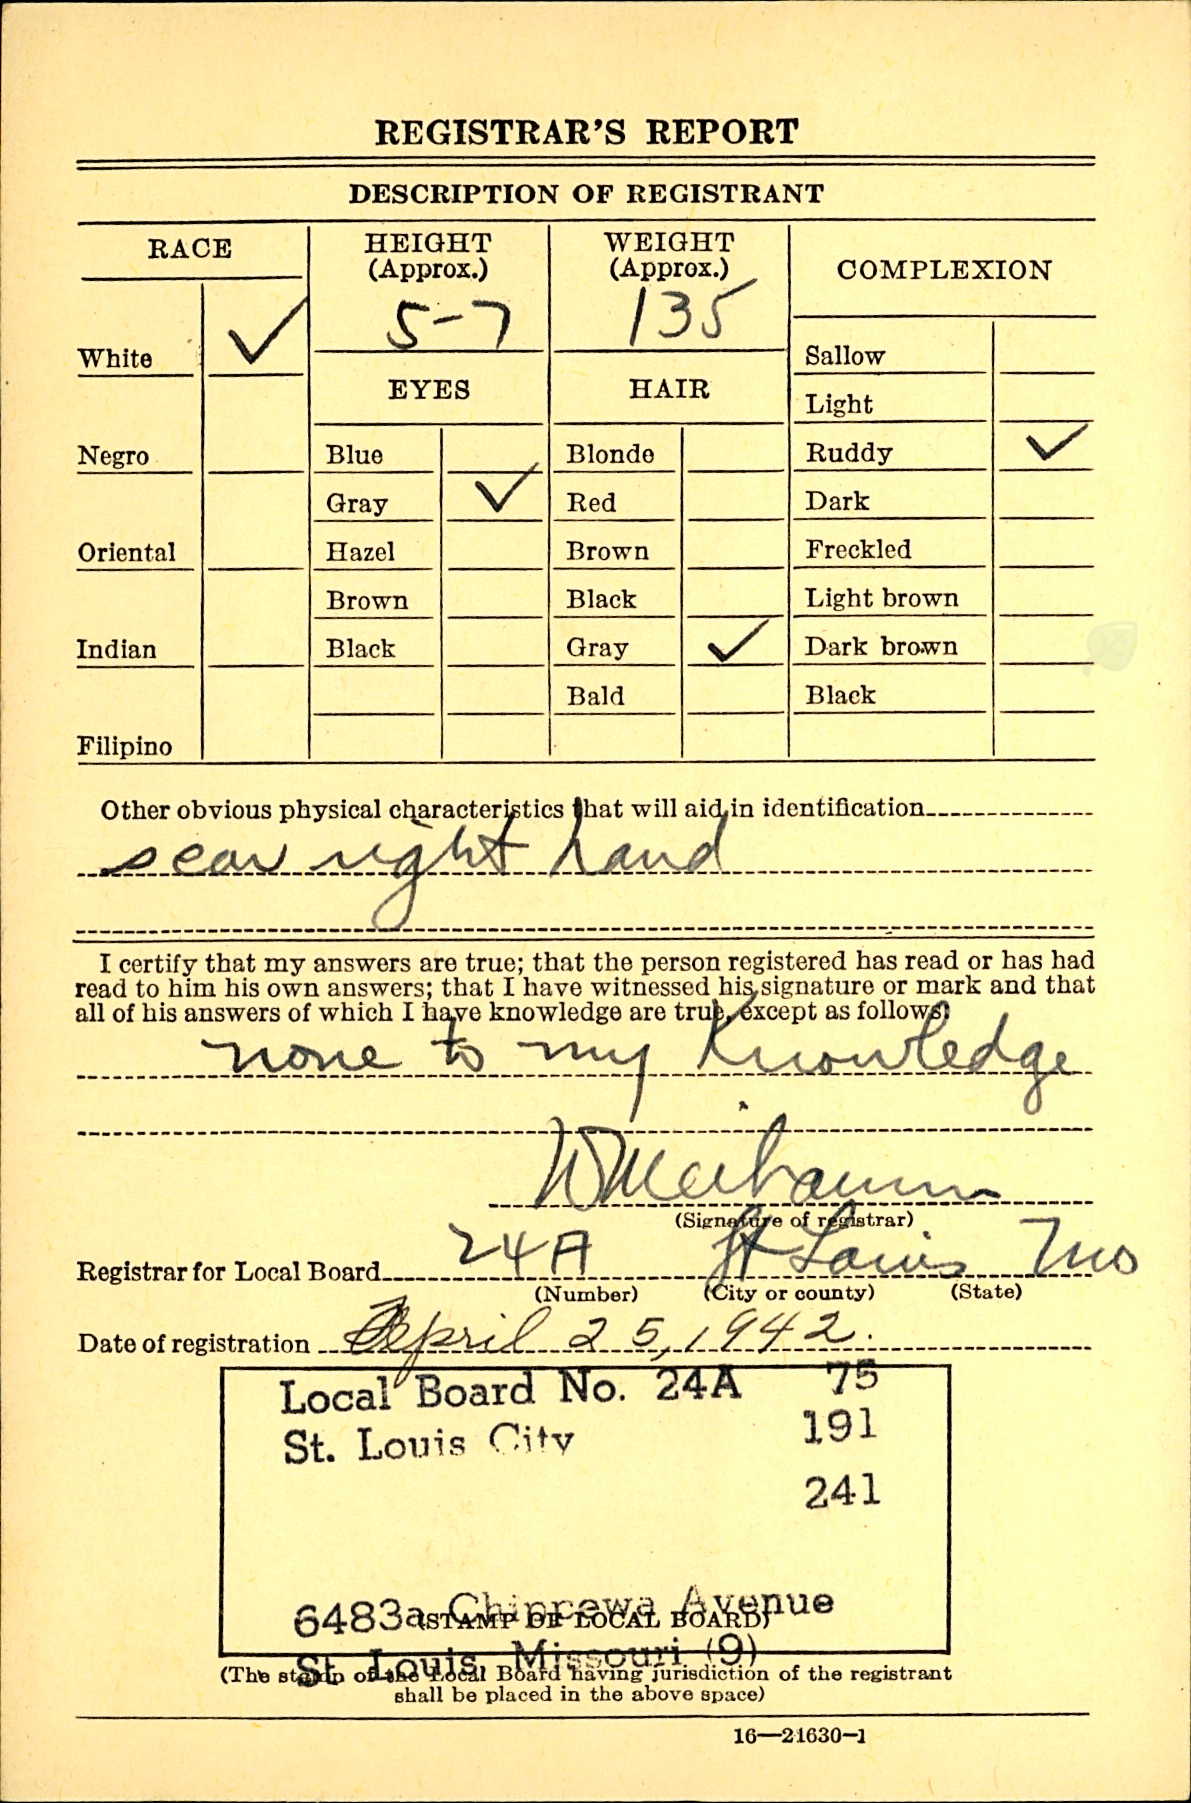 REGISTRAR'S REPORT
DESCRIPTION OF REGISTRANT
RACE
HEIGHT
(Approx.)
WEIGHT
(Approx.)
COMPLEXION
5-7
135
White ✓
Sallow
EYES
HAIR
Light
Negro
Blue
Blonde
Ruddy ✓
Gray ✓
Red
Dark
Oriental
Hazel
Brown
Freckled
Brown
Black
Light brown
Indian
Black
Gray ✓
Dark brown
Bald
Black
Filipino
Other obvious physical characteristics that will aid in identification
scar right hand
I certify that my answers are true; that the person registered has read or has had
read to him his own answers; that I have witnessed his signature or mark and that
all of his answers of which I have knowledge are true, except as follows:
none to my Knowledge
(Signature of registrar)
Registrar for Local Board 24A St Louis Mo
(Number) (City or county) (State)
Date of registration April 25, 1942.
Local Board No. 24A 75
St. Louis City 191
241
6483a Chippewa Avenue
(STAMP OF LOCAL BOARD)
St. Louis, Missouri (9)
(The stamp of the Local Board having jurisdiction of the registrant
shall be placed in the above space)
16—21630-1